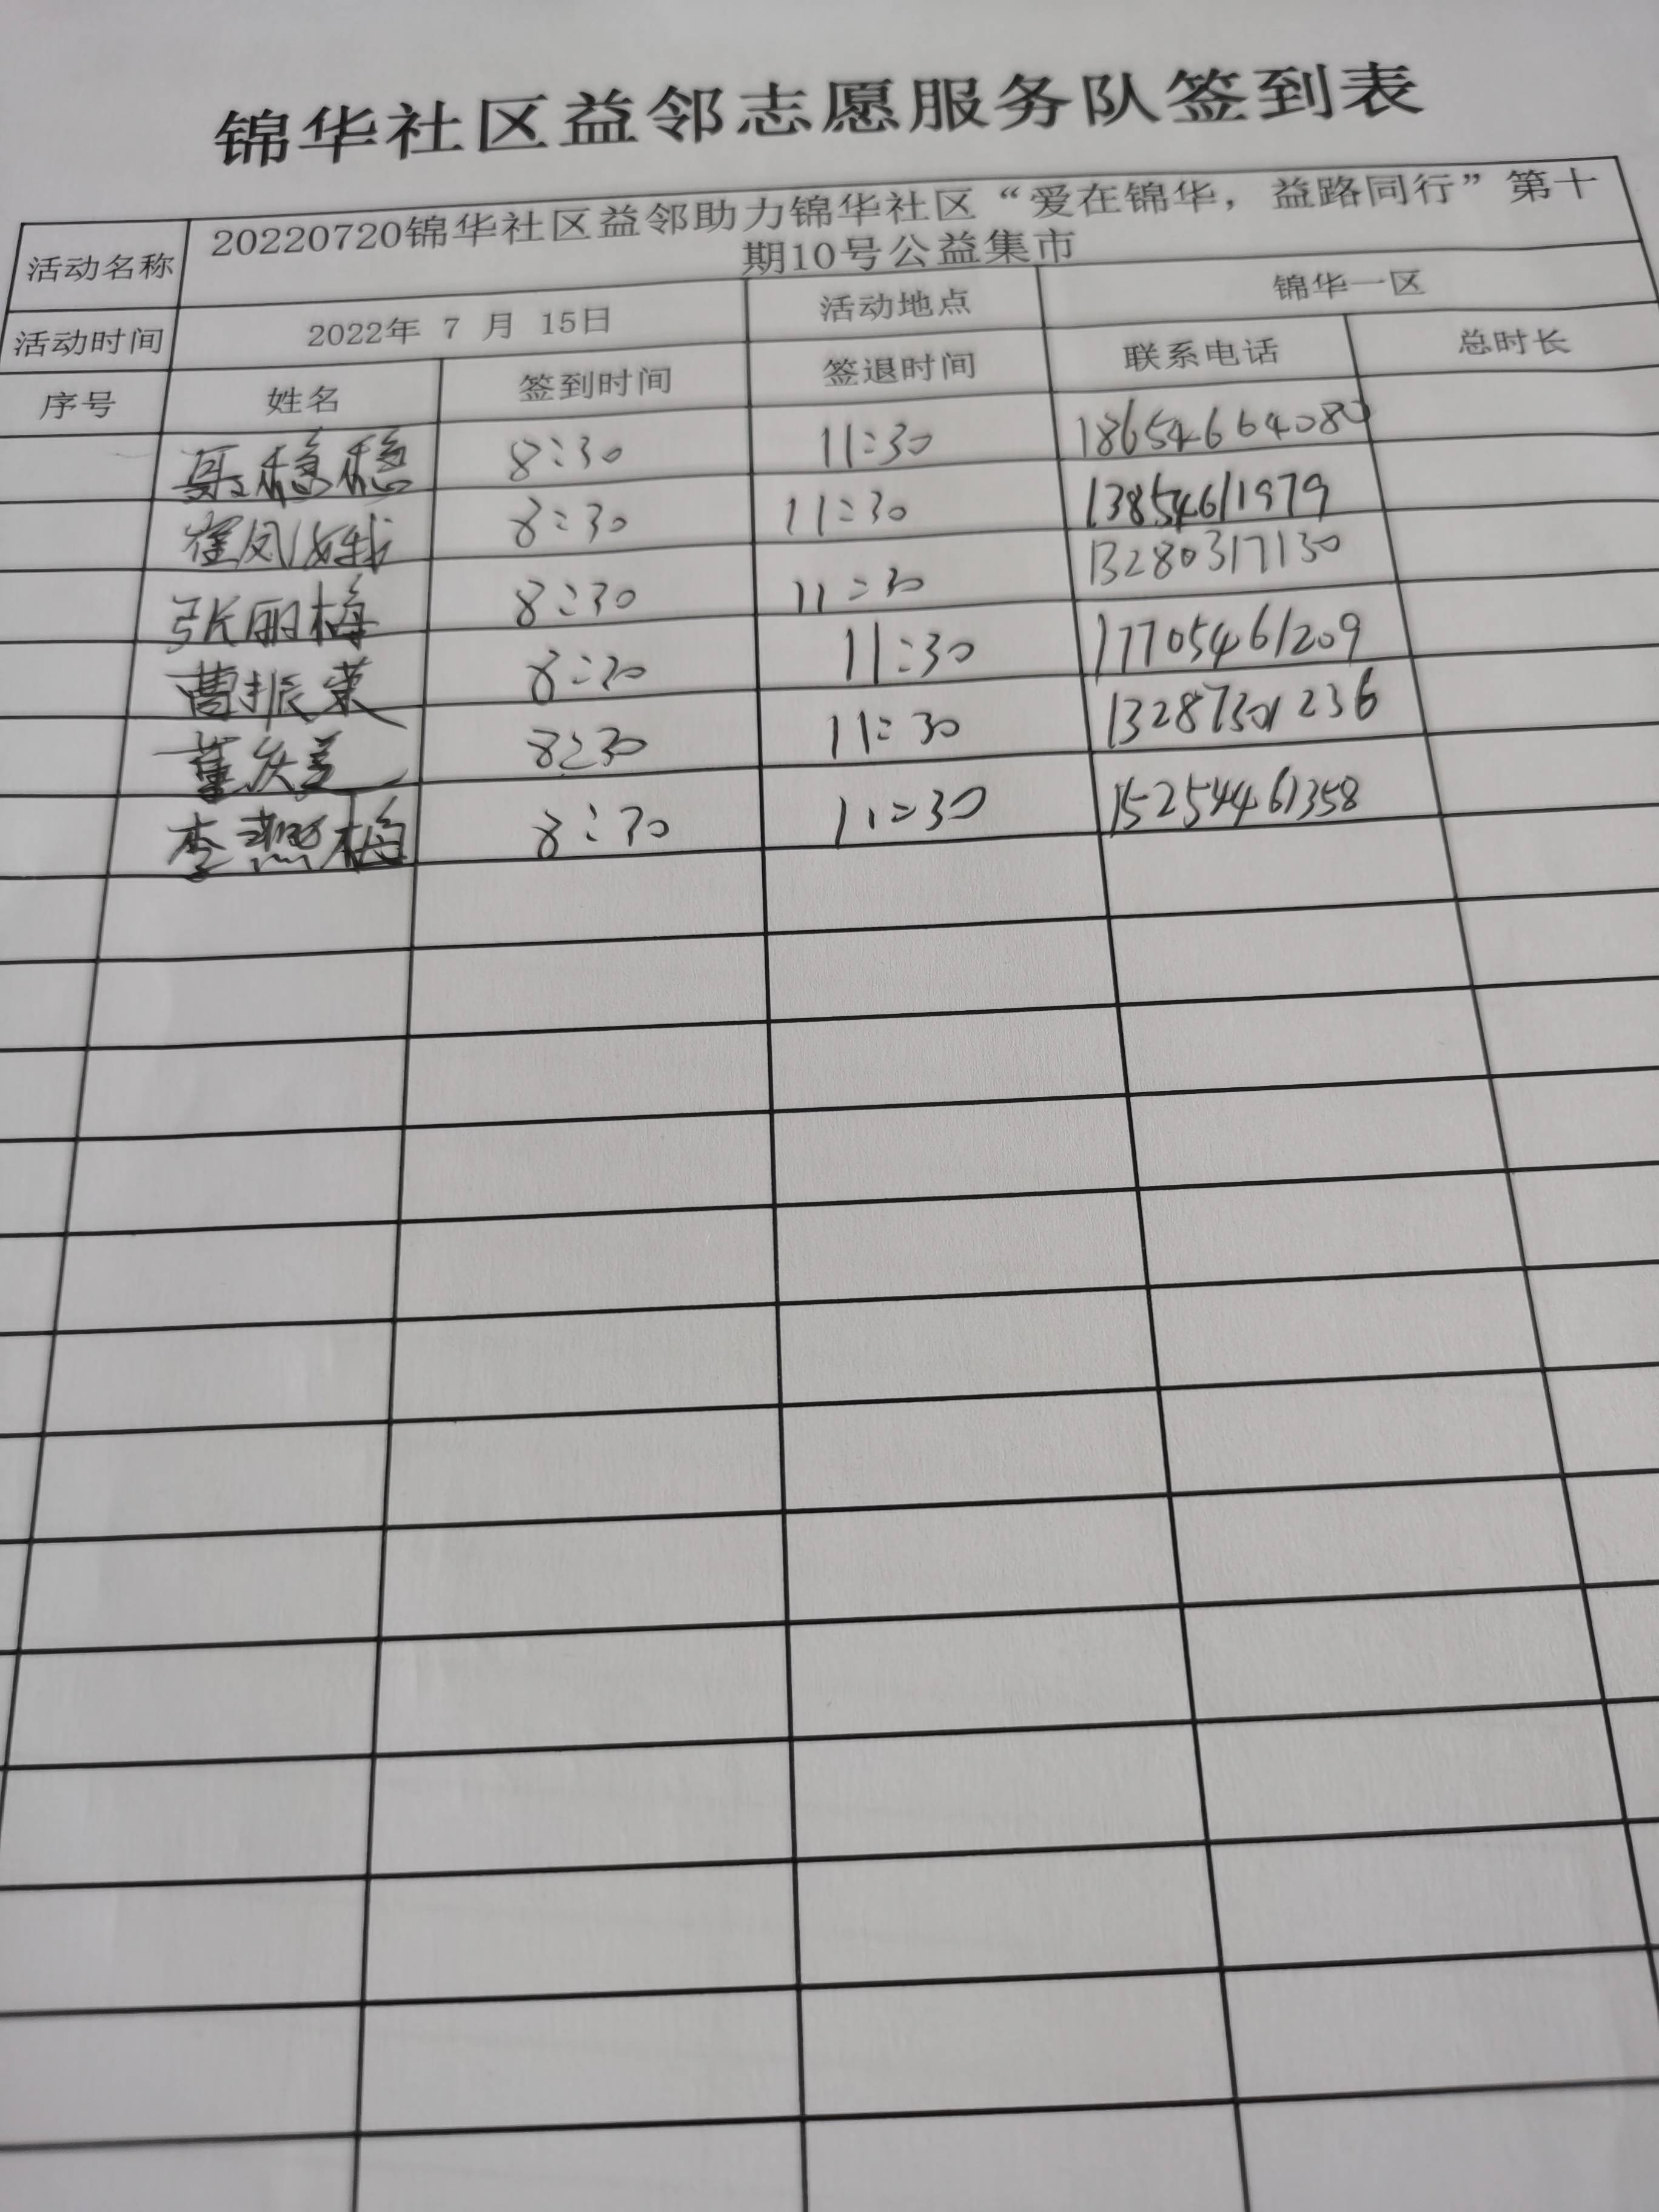 锦华社区益邻志愿服务队签到表
活动名称 20220720锦华社区益邻助力锦华社区“爱在锦华，益路同行”第十
期10号公益集市
活动时间 2022年 7 月 15日 活动地点 锦华一区
序号 姓名 签到时间 签退时间 联系电话 总时长
稳稳 8:30 11:30 18654664080
崔凤娥 8:30 11:30 13854611979
张丽梅 8:30 11:30 13280317130
曹振荣 8:30 11:30 17705461209
董庆美 8:30 11:30 13287301236
李燕梅 8:30 11:30 15254461358